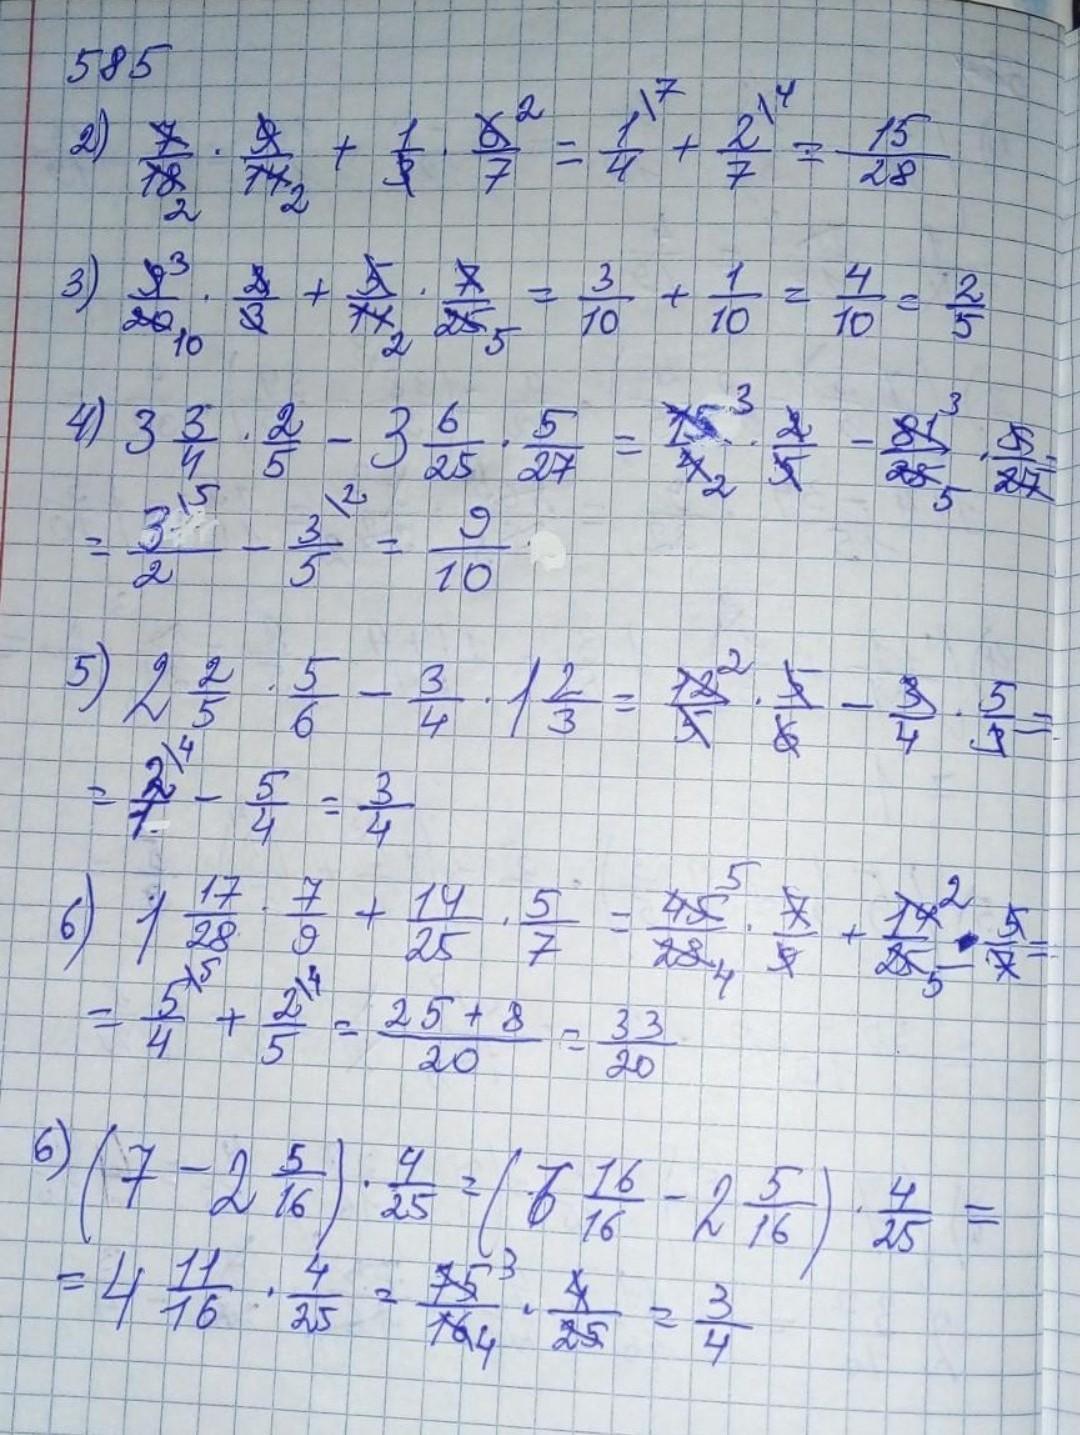 585
2) 7/18 · 9/14 + 1/3 · 6/7 = 1/4 + 2/7 = 15/28
3) 9/20 · 2/3 + 5/14 · 7/25 = 3/10 + 1/10 = 4/10 = 2/5
4) 3 3/4 · 2/5 - 3 6/25 · 5/27 = 15/4 · 2/5 - 81/25 · 5/27 =
= 3/2 - 3/5 = 9/10
5) 2 2/5 · 5/6 - 3/4 · 1 2/3 = 12/5 · 5/6 - 3/4 · 5/3 =
= 2/1 - 5/4 = 3/4
6) 1 17/28 · 7/9 + 14/25 · 5/7 = 45/28 · 7/9 + 14/25 · 5/7 =
= 5/4 + 2/5 = 25 + 8/20 = 33/20
6) (7 - 2 5/16) · 4/25 = (6 16/16 - 2 5/16) · 4/25 =
= 4 11/16 · 4/25 = 75/16 · 4/25 = 3/4